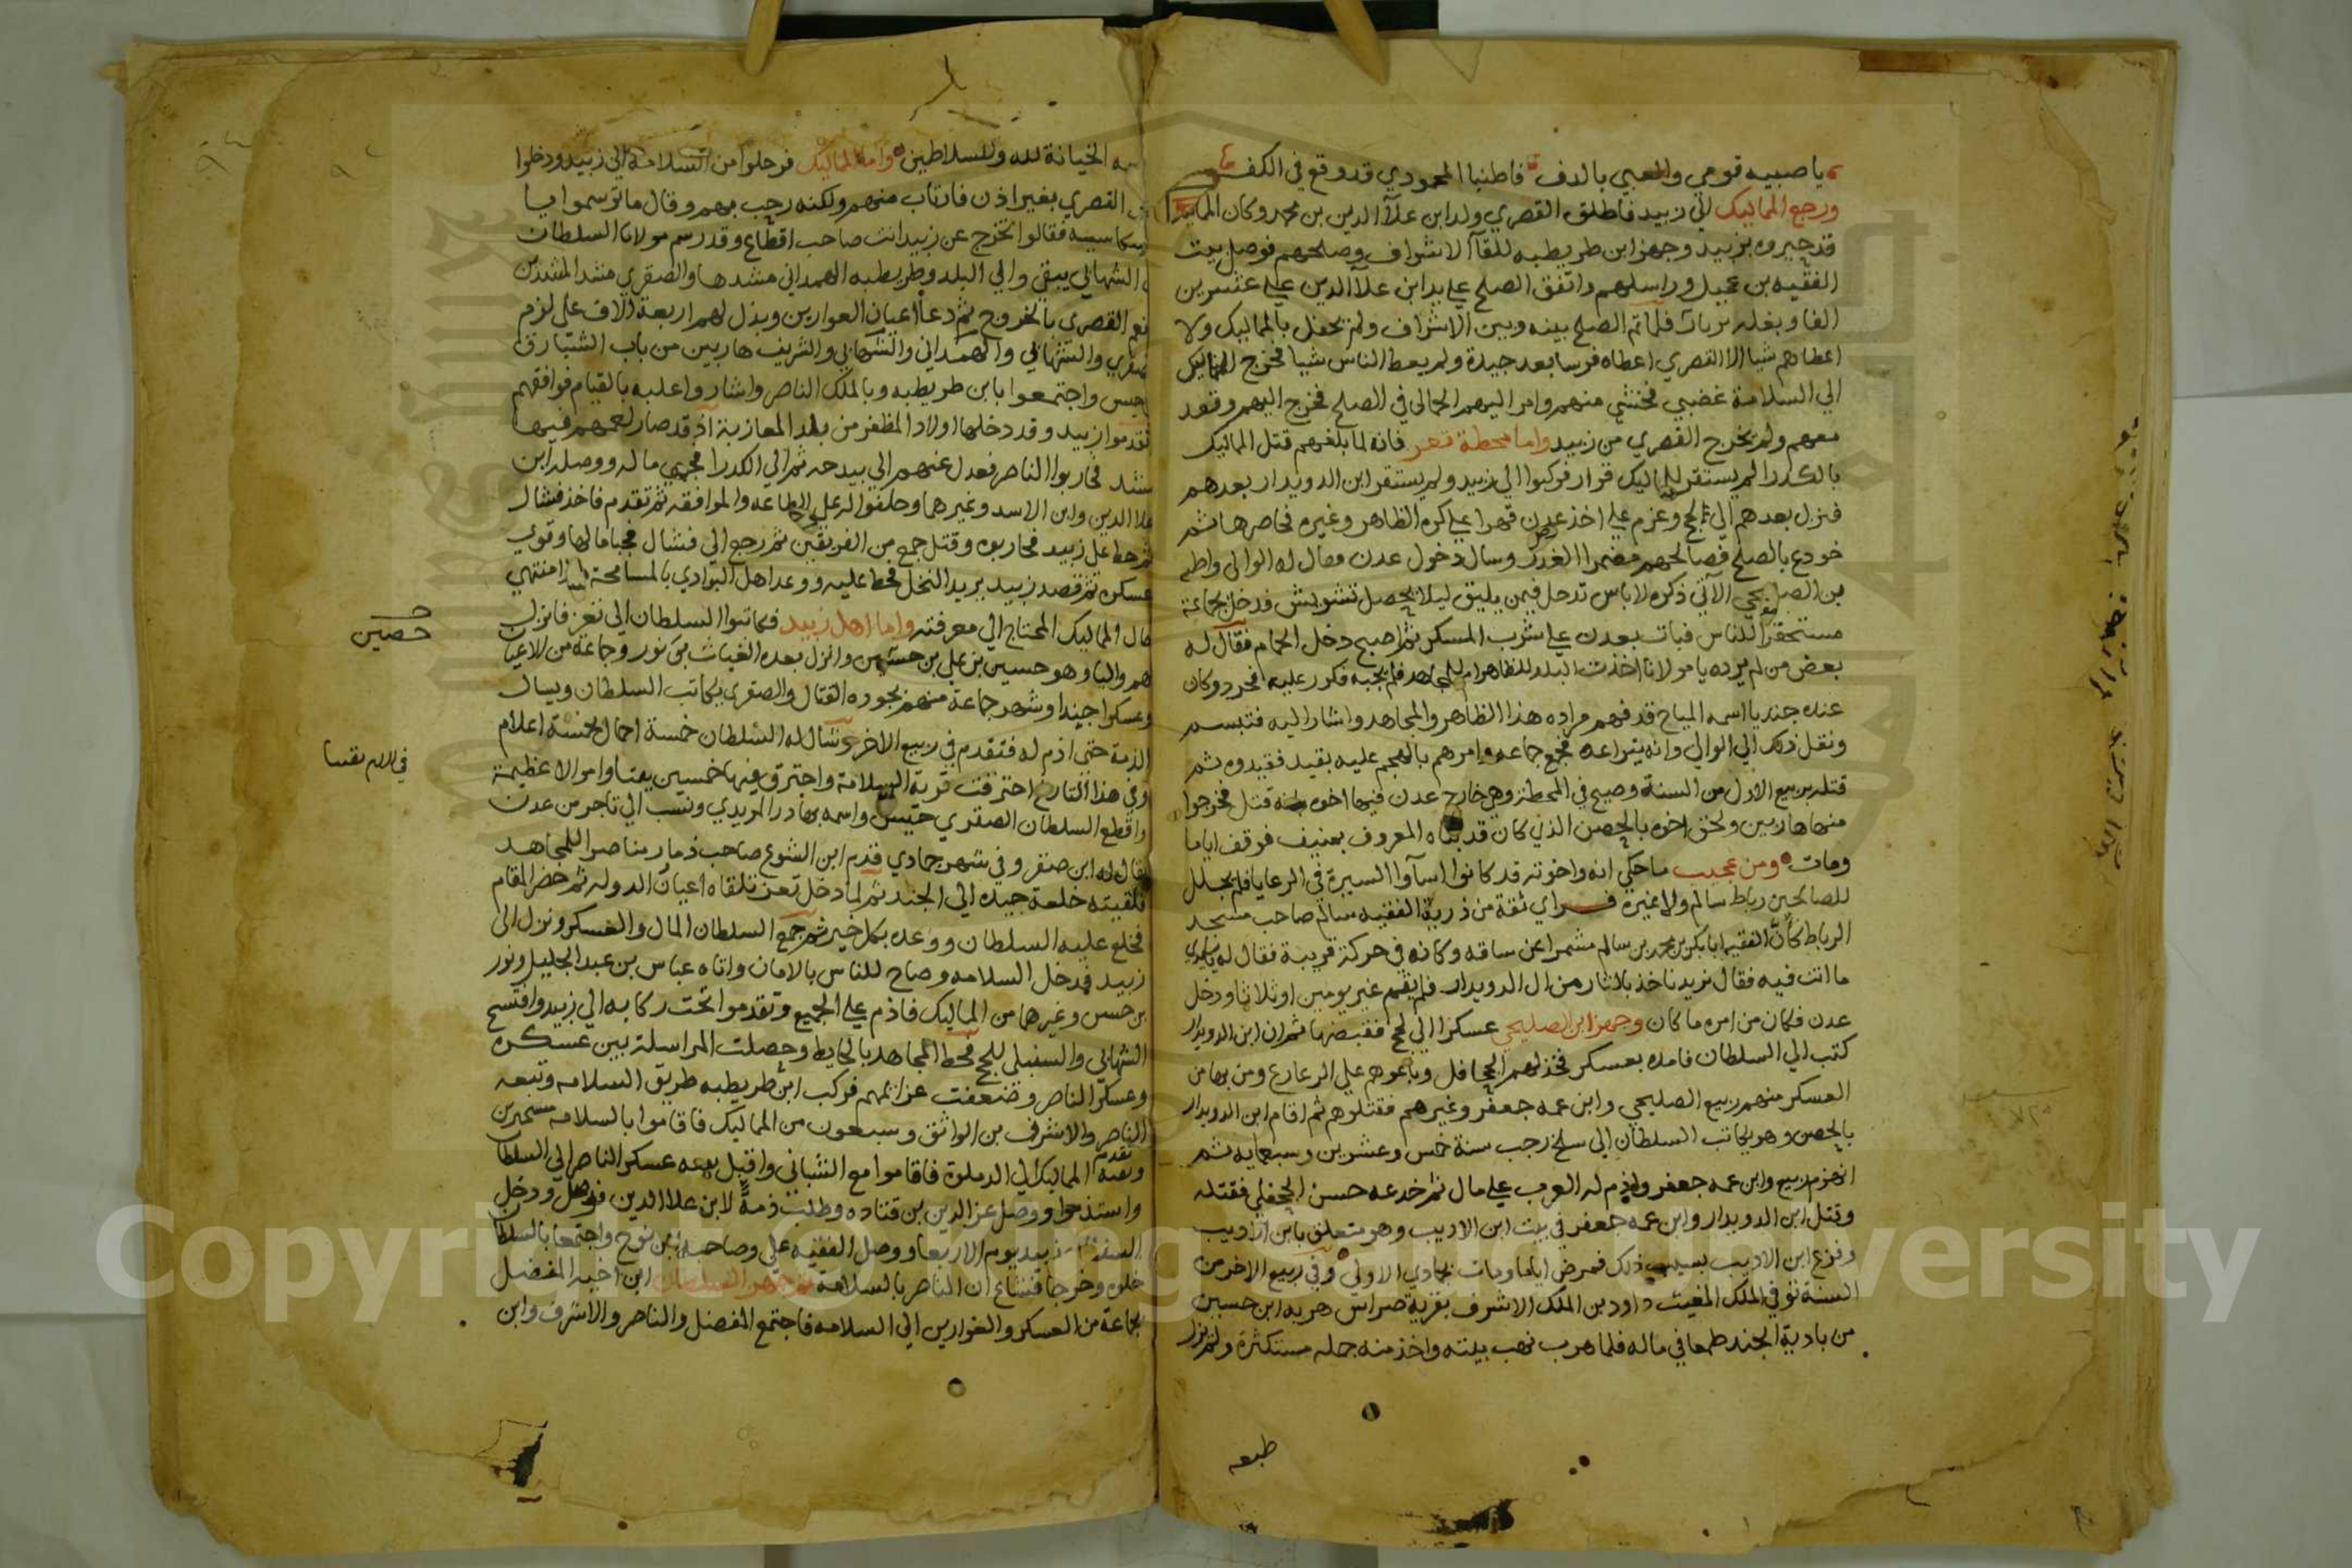 يا صبيه قومي والعبي بالدف فاطنبا المحمودي قد وقع في الكف
ورجع المماليك الي زبيد فاطلق القصري ولد ابن علاء الدين بن محمد وكان المماليك
قد جيروه بزبيد وجهز ابن طريطيه للقاء الاشراف وصلحهم فوصل بيت
الفقيه بن عجيل وراسلهم واتفق الصلح علي يد ابن علاء الدين علي عشرين
الفا وبغله فلما تم الصلح بينه وبين الاشراف ولم يحفل بالمماليك ولا
اعطاهم شيا الا القصري اعطاه فرسا بعد جيدة ولم يعط الناس شيا فخرج المماليك
الي السلامة غضبي فخشي منهم وامر اليهم الحمالي في الصلح فخرج اليهم وقعد
معهم ولم يخرج القصري من زبيد واما محطة تعز فانه لما بلغهم قتل المماليك
بالكدرا لم يستقر للمماليك قرار فركبوا الي زبيد ولم يستقر ابن الدويدار بعدهم
فنزل بعدهم الي لحج وعزم علي اخذ عدن قهرا علي كره الظاهر وغيره فحاصرها ثم
خودع بالصلح فصالحهم مضمرا الغدر وسال دخول عدن فقال له الوالي واظنه
بن الصليحي الآتي ذكره لا باس تدخل فيمن يليق ليلا يحصل تشويش فدخل بجماعة
مستحقرا للناس فبات بعدن علي شرب المسكر ثم اصبح دخل الحمام فقال له
بعض من لم يرده يا مولانا اخذت البلد للظاهر ام للمجاهد فلم يجبه فكرر عليه فحرد وكان
عنده جنديا اسمه المياح قد فهم مراده هذا الظاهر والمجاهد واشار اليه فتبسم
ونقل ذلك الي الوالي وانه يتراعد فجمع جماعه وامرهم بالهجم عليه بقيد فقيدوه ثم
قتله بربيع الاول من السنة وصيح في المحطة وهي خارج عدن فيها اخوه قتل فخرجوا
منها هاربين ولحق اخوه بالحصن الذي كان قد بناه المعروف بمنيف فوقف اياما
ومات ومن عجيب ما حكي انه واخوته قد كانوا اسآوا السيرة في الرعايا فلم يجلل
للصالحين رباط سالم ولا غيره فراي ثقة من ذرية الفقيه سالم صاحب مسجد
الرباط كأن الفقيه ابا بكر بن محمد بن سالم مشمرا عن ساقه وكانه في حركة قريبة فقال له
ما انت فيه فقال نريد ناخذ بالثار من ال الدويدار فلم يقم غير يومين او ثلاثا ودخل
عدن فكان من امره ما كان وجهز ابن الصليحي عسكرا الي لحج فقبضها ثم ان ابن الدويدار
كتب الي السلطان فامده بعسكر فخذلهم الجحافل وباعوهم علي الرعارع ومن بها من
العسكر منهم ربيع الصليحي وابن عمه جعفر وغيرهم فقتلوهم ثم اقام ابن الدويدار
بالحصن وهو يكاتب السلطان الي سلخ رجب سنة خمس وعشرين وسبعمايه ثم
انهزم ربيع وابن عمه جعفر واذم له العرب علي مال ثم خدعه حسن الجحفلي فقتله
وقتل ابن الدويدار وابن عمه جعفر في بيت ابن الاديب وهو متعلق بابن الاديب
وفزع ابن الاديب بسبب ذلك فمرض اياما ومات بجمادي الاولي وفي ربيع الاخر من
السنة توفي الملك المغيث داود بن الملك الاشرف بقرية هربه ابن حسين
من بادية الجند طمعا في ماله فلما هرب نهب بيته واخذ منه جمله مستكثرة ولم يزل
طبعه
الخيانة لله وللسلاطين واما المماليك فرحلوا من السلامة الي زبيد ودخلوا
القصري بغير اذن فارتاب منهم ولكنه رحب بهم وقال ما ترسموا يا
فقالوا تخرج عن زبيد انت صاحب اقطاع وقد رسم مولانا السلطان
الشهابي يبقي والي البلد وطريطيه الهمداني مشدها والصقري مشد المشدين
القصري بالخروج ثم دعا اعيان العوارين وبذل لهم اربعة الاف علي لزم
والشهابي والهمداني والشهابي والشريف هاربين من باب الشبارق
واجتمعوا بابن طريطيه وبالملك الناصر واشاروا عليه بالقيام فوافقهم
تقدموا زبيد وقد دخلها اولاد المظفر من بلد المعازبة اذ قد صار لعمهم فيها
فحاربوا الناصر فعدل عنهم الي بيدحه ثم الي الكدرا فجبي ماله ووصله ابن
علا الدين وابن الاسد وغيرهما وحلفوا له علي الطاعه والموافقه ثم تقدم فاخذ فشال
ثم حط علي زبيد فحاربوه وقتل جمع من الفريقين ثم رجع الي فشال فجبا مالها وقوي
عسكره ثم قصد زبيد يريد النخل فحط عليه ووعد اهل البوادي بالمسامحة هذا منتهي
حال المماليك المحتاج الي معرفته واما اهل زبيد فكاتبوا السلطان الي تعز فانزل
لهم واليا وهو حسين بن علي بن حسين وانزل بعده الغياث بن نور وجماعة من الاعيان
وعسكرا جيدا وشهر جماعة منهم بجوده القتال والصقري يكاتب السلطان ويسال
الذمة حتي اذم له فتقدم في ربيع الاخر وسال له السلطان خمسة احمال خمسة اعلام
وفي هذا التاريخ احترقت قرية السلامة واحترق فيها خمسين بيتا واموالا عظيمة
واقطع السلطان الصقري حيس واسمه بهادر المريدي ونسب الي تاجر من عدن
يقال له ابن صقر وفي شهر جمادي قدم ابن الشوع صاحب ذمار مناصرا للمجاهد
فلقيته خلعة جيده الي الجند ثم لما دخل تعز تلقاه اعيان الدوله ثم حضر المقام
فخلع عليه السلطان ووعده بكل خير ثم جمع السلطان المال والعسكر ونزل الي
زبيد فدخل السلامه وصاح للناس بالامان واتاه عباس بن عبد الجليل ونور
بن حسن وغيرهما من المماليك فاذم علي الجميع وتقدموا تحت ركابه الي زبيد وافتسح
الشهابي والسنبلي للحج فحط المجاهد بالحايط وحصلت المراسلة بين عسكره
وعسكر الناصر وضعفت عزائمهم فركب ابن طريطيه طريق السلامه وتبعه
الناصر والاشرف بن الواثق وسبعون من المماليك فاقاموا بالسلامه
المماليك الي الدملوة فاقاموا مع الشباني واقبل بعده عسكر الناصر الي السلطان
واستذموا ووصل عز الدين بن قتاده وطلب ذمة لابن علا الدين فوصل ودخل
زبيد يوم الاربعا ووصل الفقيه علي وصاحبه بن نوح واجتمعا بالسلطان
خلوه وخرجا فشاع ان الناصر بالسلامة ثم جهز السلطان ابن اخيه المفضل
بجماعة من العسكر والغوارين الي السلامه فاجتمع المفضل والناصر والاشرف وابن
حصين
Copyright © King Saud University